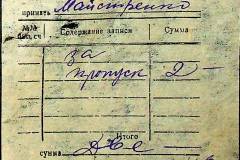 принять Майстренко
№№ Содержание записи Сумма
за
пропуск 2 -
Итого
сумма Две